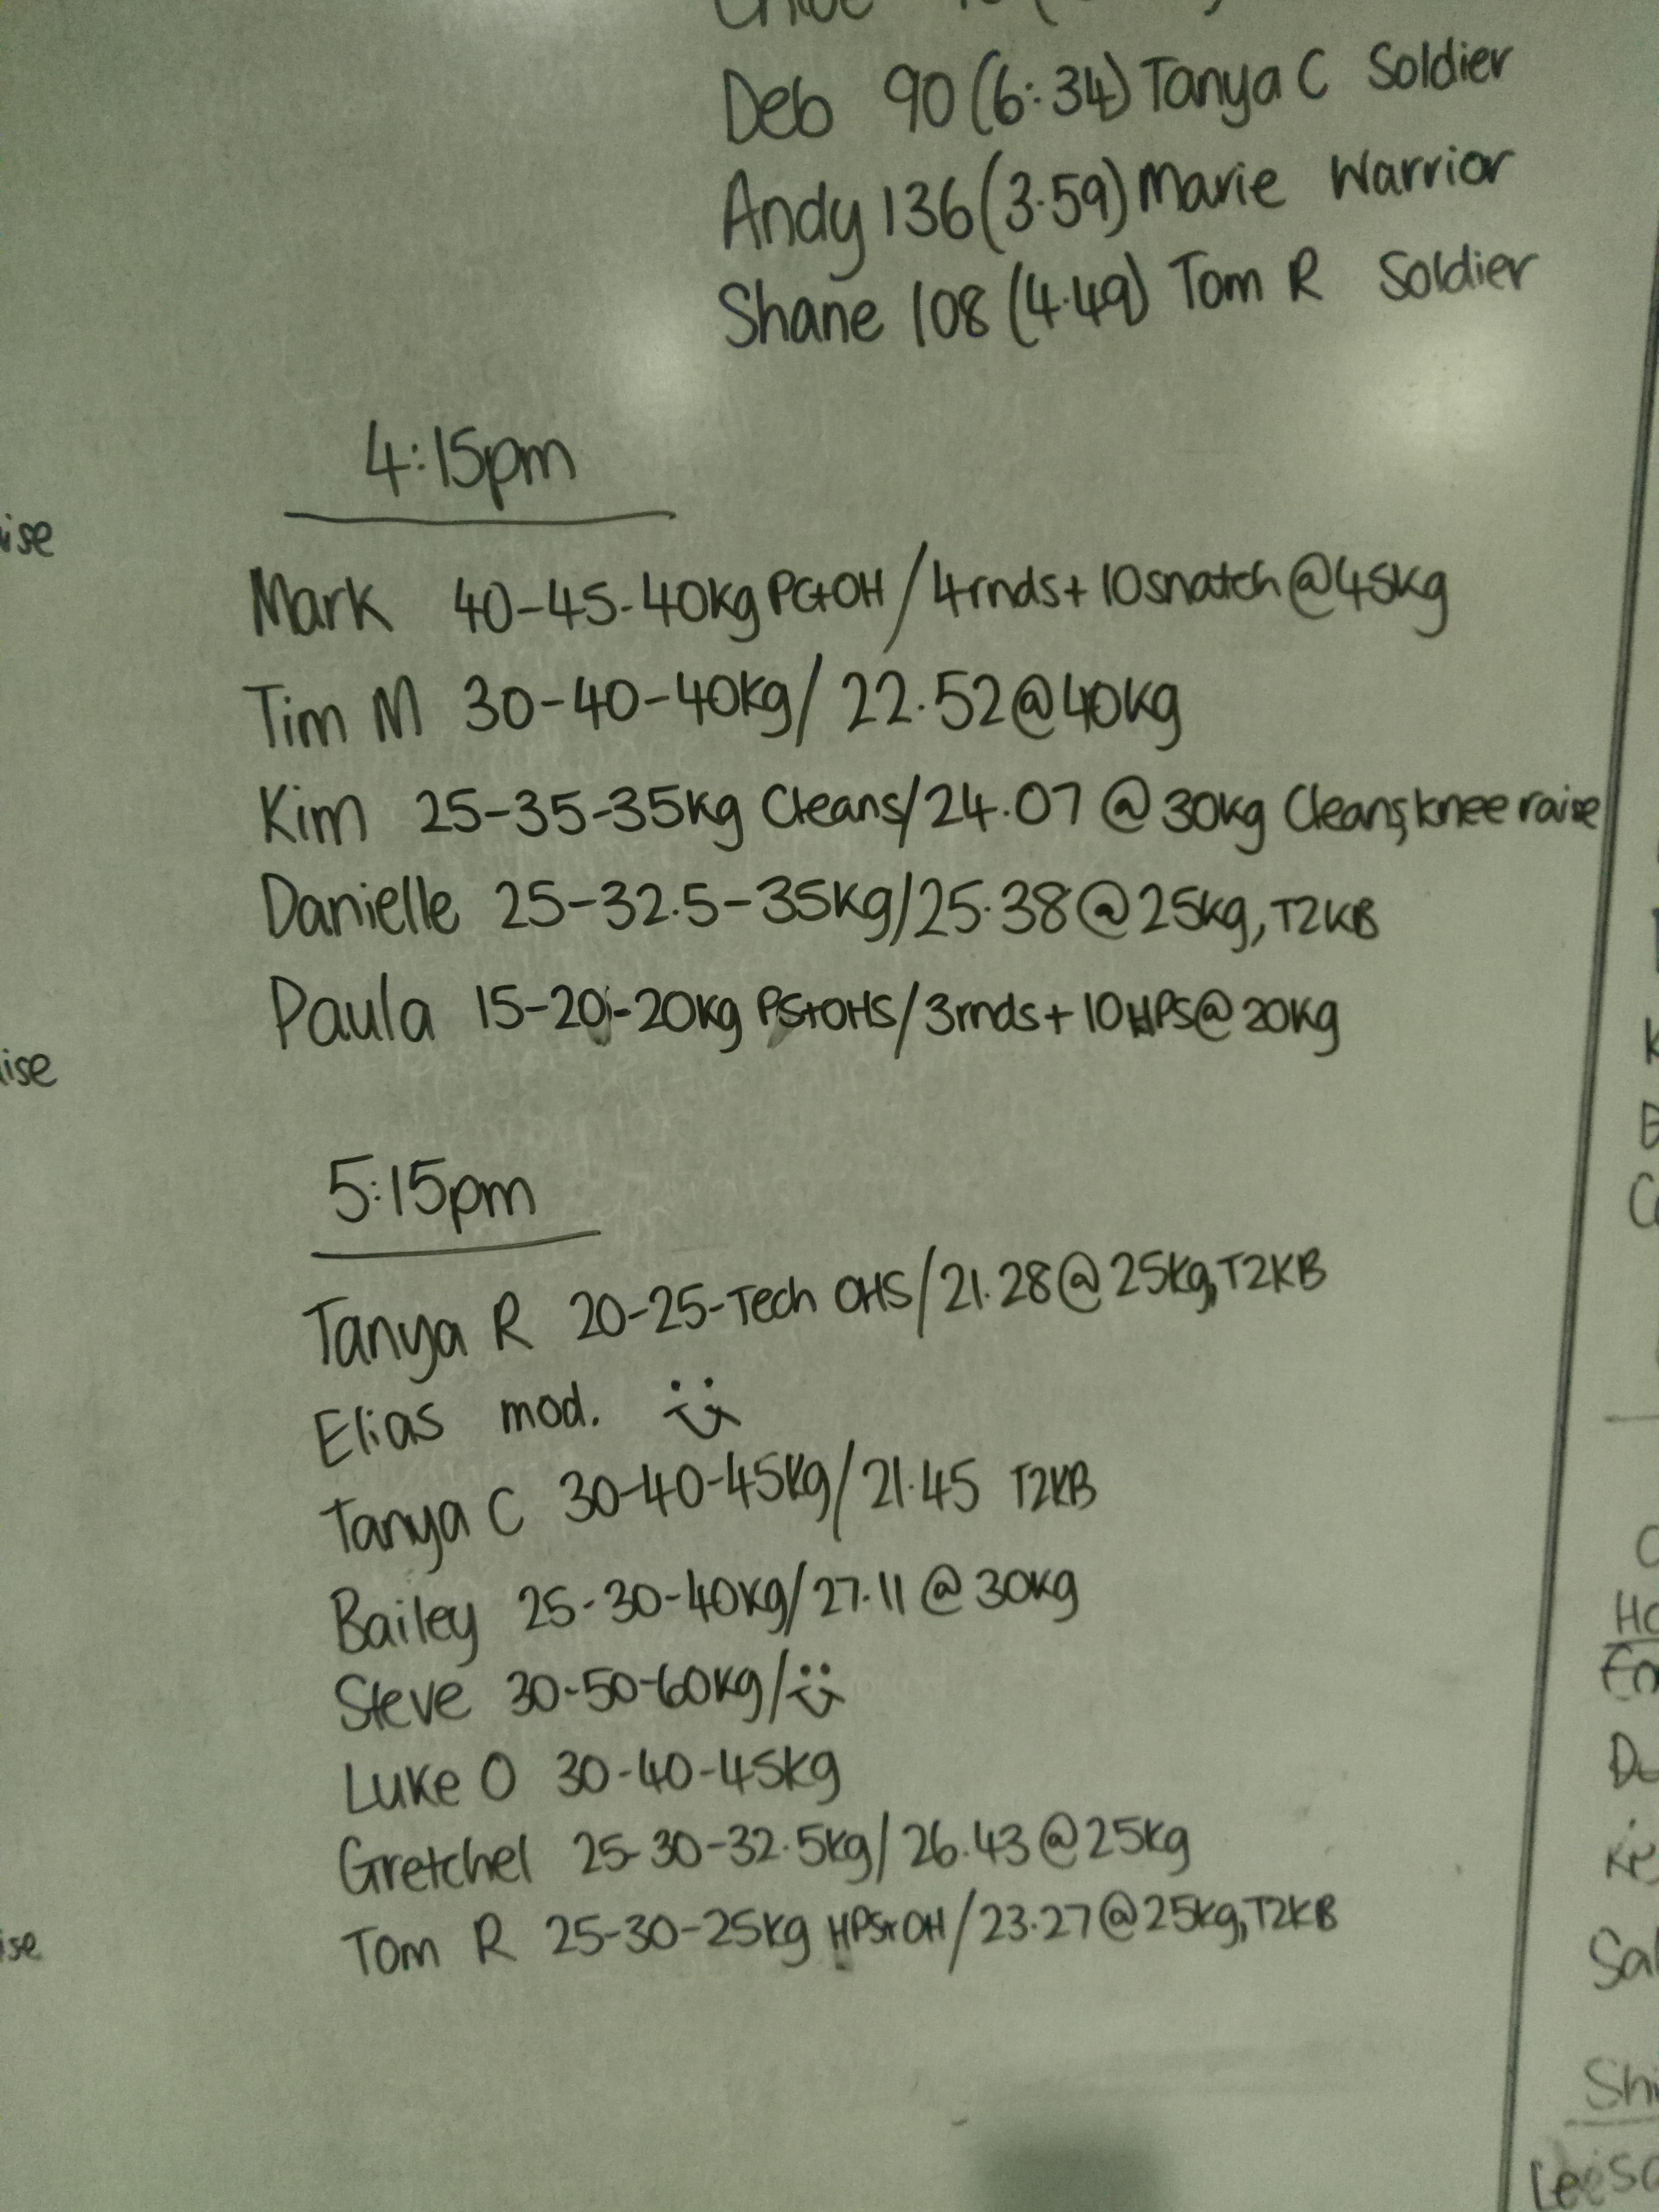 Deb 90 (6:34) Tanya C Soldier
Andy 136 (3.59) Marie Warrior
Shane 108 (4.49) Tom R Soldier
4:15pm
ise
Mark 40-45-40kg PC+OH / 4rnds + 10 snatch @ 45kg
Tim M 30-40-40kg / 22.52 @ 40kg
Kim 25-35-35kg Cleans / 24.07 @ 30kg Cleans, knee raise
Danielle 25-32.5-35kg / 25.38 @ 25kg, T2KB
Paula 15-20-20kg PS+OHS / 3rnds + 10 HPS @ 20kg
ise
5:15pm
Tanya R 20-25-Tech OHS / 21.28 @ 25kg, T2KB
Elias mod.
Tanya C 30-40-45kg / 21.45 T2KB
Bailey 25-30-40kg / 27.11 @ 30kg
Steve 30-50-60kg /
Luke O 30-40-45kg
Gretchel 25-30-32.5kg / 26.43 @ 25kg
Tom R 25-30-25kg HPS+OH / 23.27 @ 25kg, T2KB
ise